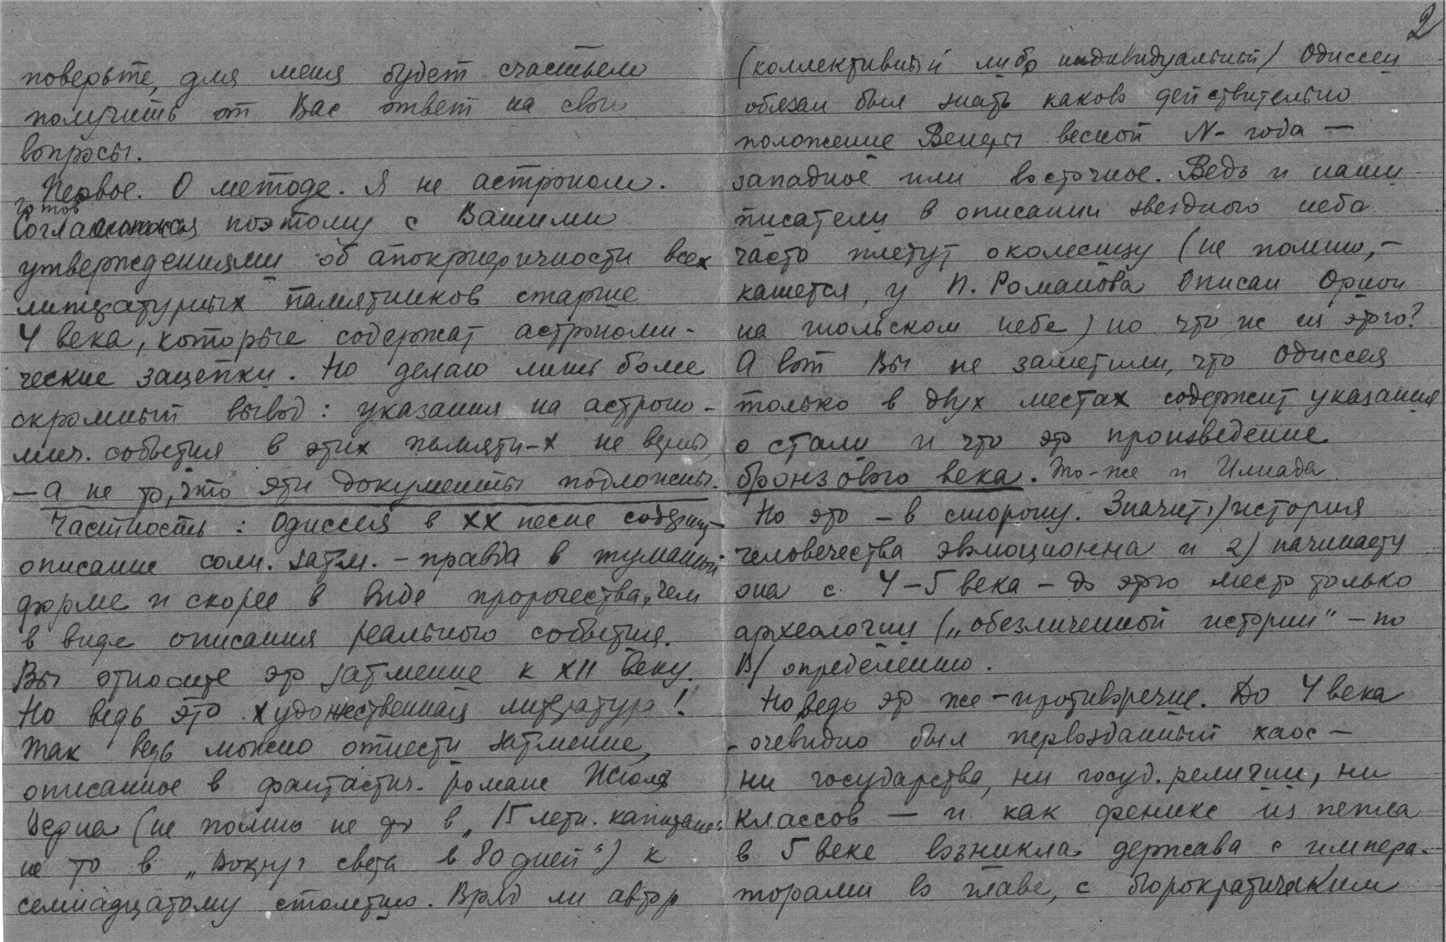 2
поверьте, для меня будет счастьем
получить от Вас ответ на свои
вопросы.
Первое. О методе. Я не астроном.
готов
Согласиться поэтому с Вашими
утверждениями об апокрифичности всех
литературных памятников старше
4 века, которые содержат астрономи-
ческие зацепки. Но делаю лишь более
скромный вывод: указания на астроно-
мич. события в этих памяти-х не верны
— а не то, что эти документы подложны.
Частность: Одиссея в XX песне содержит
описание солн. затм. – правда в туманной
форме и скорее в виде пророчества, чем
в виде описания реального события.
Вы относите это затмение к XII веку.
Но ведь это художественная литература!
Так ведь можно отнести затмение,
описанное в фантастич. романе Жюля
Верна (не помню не то в „15 летн. капитане"
не то в „Вокруг света в 80 дней") к
семнадцатому столетию. Вряд ли автор
(коллективный либо индивидуальный) Одиссеи
обязан был знать каково действительно
положение Венеры весной N- года —
западное или восточное. Ведь и наши
писатели в описании звездного неба
часто плетут околесицу (не помню, –
кажется, у П. Романова описан Орион
на июльском небе) но что ж из этого?
А вот Вы не заметили, что Одиссея
только в двух местах содержит указания
о стали и что это произведение
бронзового века. То-же и Илиада
Но это – в сторону. Значит, 1) история
человечества эволюционна и 2) начинается
она с 4–5 века – до этого место только
археологии („обезличенной истории" – по
В/ определению.
Но ведь это же – противоречие. До 4 века
- очевидно был первозданный хаос –
ни государства, ни госуд. религии, ни
классов — и как феникс из пепла
в 5 веке возникла держава с импера-
торами во главе, с бюрократическим